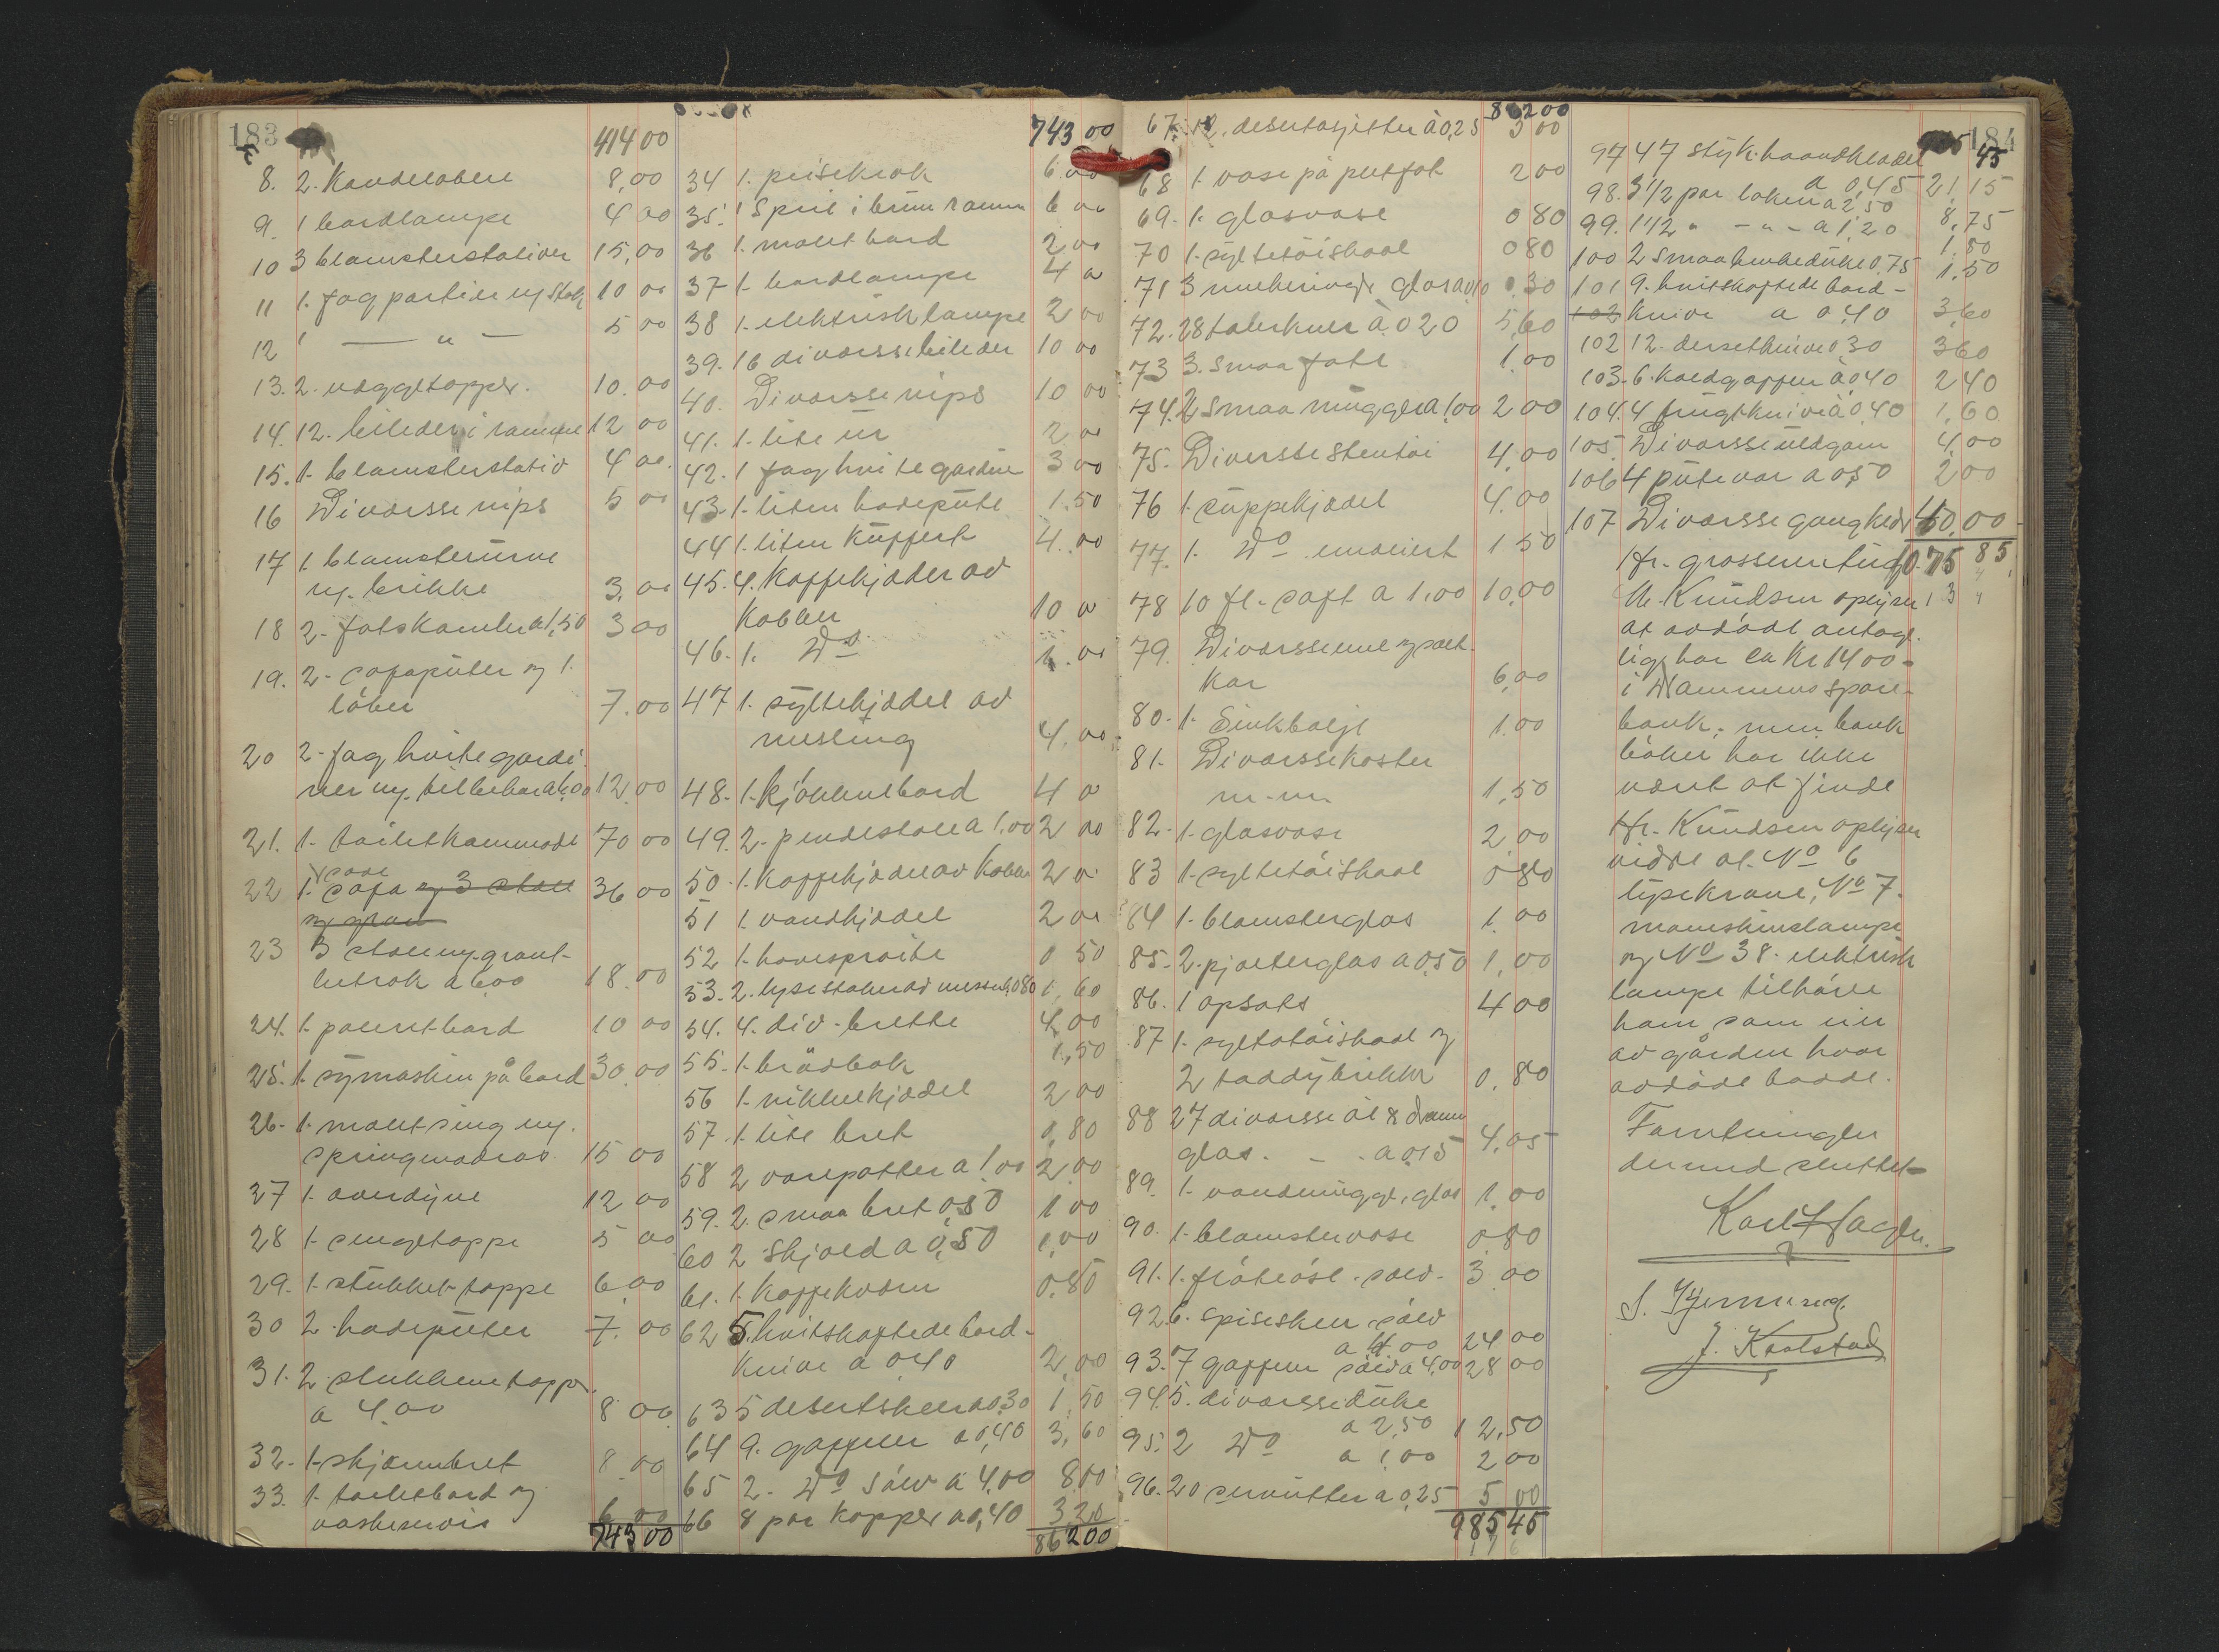 183
414 00
8. 2. Kandelabere 8,00
9. 1 bordlampe 4 00
10 3 blomsterstativer 15,00
11 1. fag portierer m/ stok 10 00
12 1 — " — 5 00
13. 2. væggetopper. 10.00
14. 12. billeder i ramme 12 00
15. 1. blomsterstativ 4 00.
16 Divorsse nips 5 00
17 1. blomsterurne
m/. brikke 3,00
18 2. fotskamler a 1,50 3 00
19. 2. sofaputer og 1.
løber 7.00
20 2. fag hvite gardi-
ner m/. tilbehør a 6,00 12,00
21. 1. toiletkommode 70 00
22 1. sofa og 3 stole 36 00
23 3 stole m/. grønt-
betræk a 6,00 18.00
24. 1. polertbord 10 00
25. 1. symaskin på bord 30,00
26. 1. malt seng m/.
springmadras 15 00
27 1. overdyne 12 00
28 1. sengetæppe 5 00
29. 1. stukket-tæppe 6,00
30 2. hodeputer 7.00
31. 2. stukkene tæpper
a 4.00 8 00
32. 1. skjærmbret 8.00
33. 1. toiletbord og
vaskeservis 6.00
743 00
743 00
34 1. peisekrok 6.00
35. 1 speil i brun ramme 6 00
36 1. malt bord 2,00
37 1. bordlampe 4 00
38 1. elektrisk lampe 2 00
39. 16 divorsse bileder 10 00
40. Divorsse nips 10 00
41. 1. lite ur 2.00
42. 1 fag hvite gardiner 3 00
43. 1. liten hodepute 1.50
44 1. liten kuffert 4.00
45. 4. Kaffekjædler av
Kobber 10 00
46. 1. Do 1.00
47 1. syltekjædel av
messing 4.00
48. 1. kjøkkenbord 4 00
49. 2. pindestole a 1.00 2 00
50. 1. Kaffekjædel av Kobber 2 00
51 1. vandkjædel 2 00
52 1. havesprøite 0 50
53. 2. lysestaker av messing 0,80 1,60
54. 4. div. brette 4,00
55. 1. brødbok 1,50
56 1. nikkelkjædel 2 00
57. 1. lite bret 0,80
58 2 vaspotter a 1.00 2,00
59. 2. smaa bret 0,50 1 00
60 2 Skjold a 0,50 1,00
61. 1. Kaffekværn 0,80
62 5. hvitskaftede bord-
knive a 0,40 2,00
63 5 desertskeer a 0,30 1,50
64 9. gafler a 0,40 3,60
65 2. Do sølv a 4,00 8,00
66 8 par Kopper a 0,40 3,20
862 00
184
862 00
67. 12. desertasjetter à 0,25 3 00
68 1. vase på putfot 2 00
69. 1. glasvase 0 80
70 1. syltetøiskaal 0 80
71 3 glas a 0,10 0,30
72. 28 talerkner à 0 20 5,60
73 3. smaa fate 1.00
74. 2 smaa mugger a 1,00 2 00
75. Diverste Stentøi 4,00
76 1. suppekjædel 4.00
77. 1. Do emaliert 1 50
78 10 fl. saft a 1,00 10,00
79. Divorsse mel og salt-
kar 6,00
80. 1. Sinkbalje 1.00
81. Divorsse koster
m.m. 1,50
82. 1. glasvase 2,00
83 1. syltetøiskaal 0 80
84 1. blomsterglas 1.00
85. 2. pjolterglas a 0,50 1,00
86. 1 opsats 4 00
87 1. syltetøiskaal og
2 toddybrikker 0.80
88 27 divorsse øl & dram
glas. - . a 0,15 4,05
89. 1. vandmugge, glas 1.00
90. 1. blomstervase 0,80
91. 1. fløteøse. sølv. 3 00
92. 6. spiseskeer. sølv
a 4,00 24 00
93. 7 gafler sølv a 4,00 28 00
94 5. divorsse duke
a 2,50 12,50
95. 2 Do a 1,00 2 00
96. 20 servietter a 0,25 5 00
985,45
45
97 47 styk. haandklæder
a 0,45 21,15
98. 3 1/2 par laken a 2,50 8,75
99. 1 1/2 " - " - a 1,20 1,80
100 2 smaa duke 0,75 1,50
101 9. hvitskaftede bord-
102 knive a 0,40 3,60
102 12. dersetknive 0,30 3 60
103. 6. Kaldgafler à 0,40 2 40
104. 4 frugtknive à 0,40 1,60
105. Divorsse uldgarn 4,00
106 4 putevar a 0,50 2 00
107 Divorsse gangklær 40,00
1075 85
Hr. grosserer
M. Knudsen oplyser
at avdøde antage-
lig har ca Kr 1400-
i Drammens spare-
bank, men bank
bøker har ikke
været at finde
Hr. Knudsen oplyser
vidre at. No 6
lysekrone, No 7.
maaneskinslampe
og No 38. elektrisk
lampe tilhører
ham, som eier
av gården hvor
avdøde bodde.
Forretningen
dermed sluttet-
Karl Hagen.
J. Kaalstad